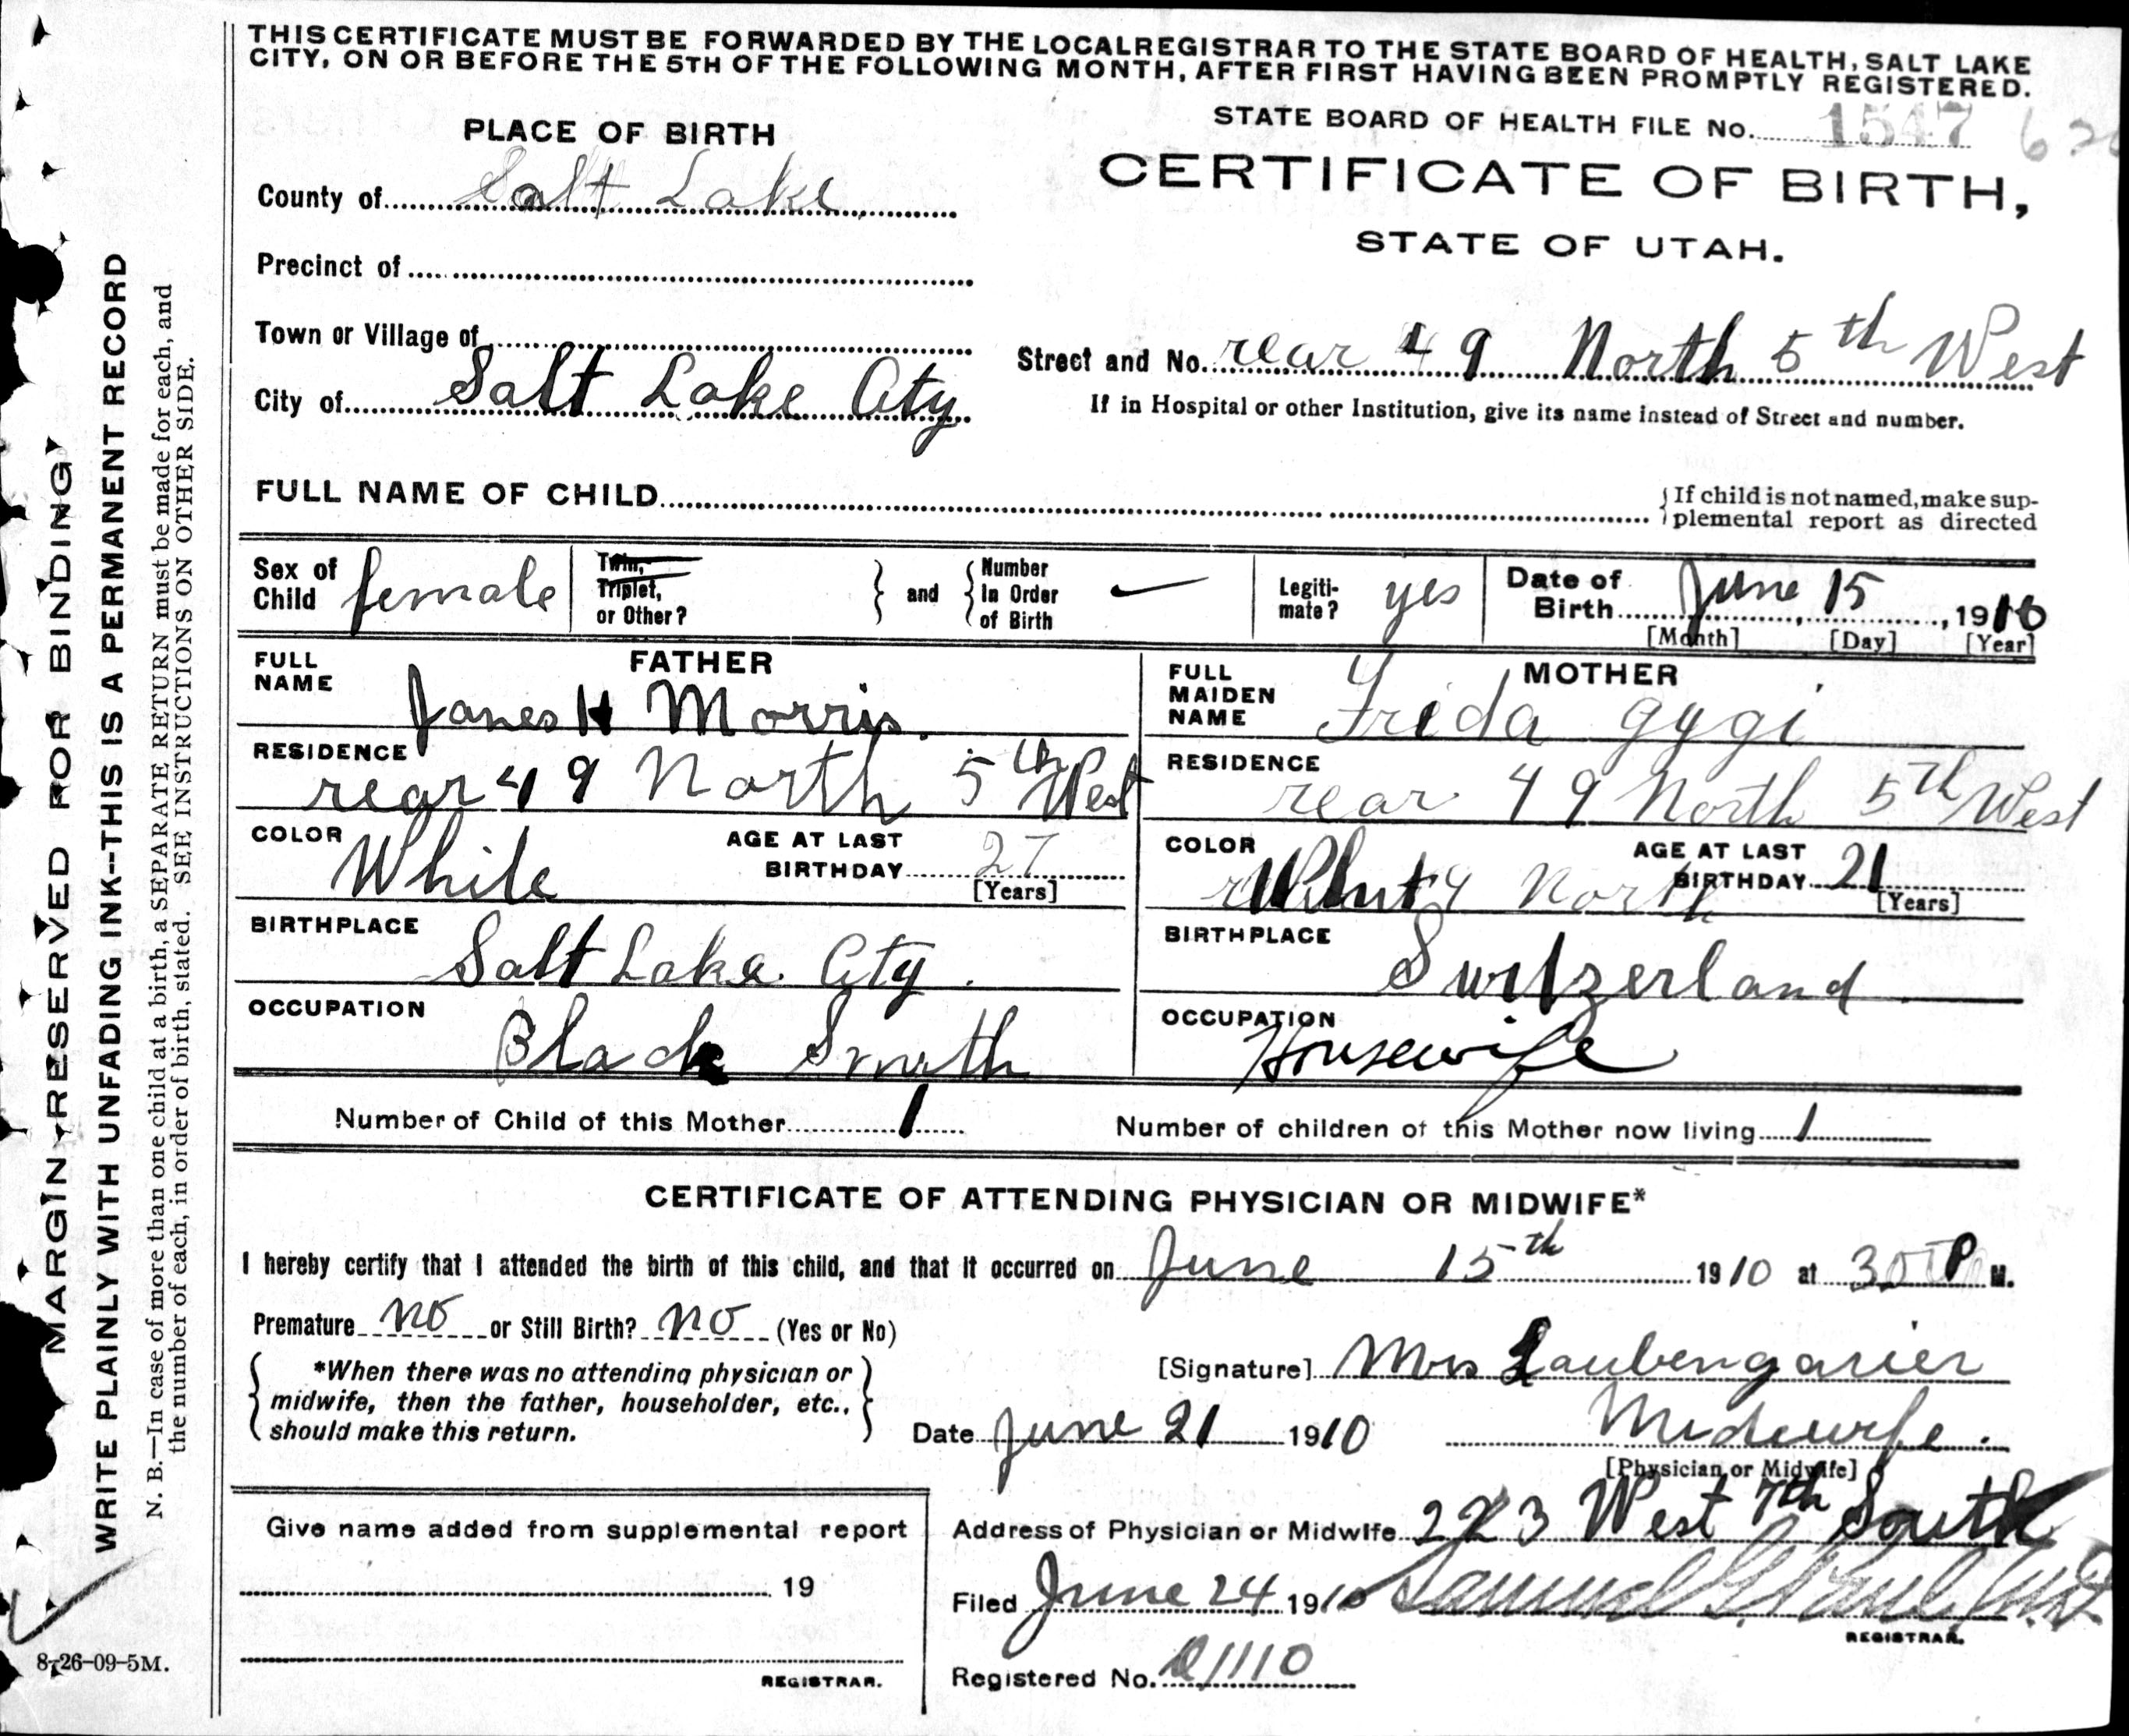 THIS CERTIFICATE MUST BE FORWARDED BY THE LOCAL REGISTRAR TO THE STATE BOARD OF HEALTH, SALT LAKE
CITY, ON OR BEFORE THE 5TH OF THE FOLLOWING MONTH, AFTER FIRST HAVING BEEN PROMPTLY REGISTERED.
STATE BOARD OF HEALTH FILE No. 1547
PLACE OF BIRTH
CERTIFICATE OF BIRTH,
STATE OF UTAH.
County of Salt Lake
Precinct of
Town or Village of
City of Salt Lake City
Street and No. rear 49 North 5th West
If in Hospital or other Institution, give its name instead of Street and number.
FULL NAME OF CHILD
If child is not named, make sup-
plemental report as directed
Sex of Child female
Twin, Triplet, or Other?
and
Number In Order of Birth
Legiti-mate? yes
Date of Birth June 15, 1910
[Month] [Day] [Year]
FATHER
FULL NAME James H Morris.
RESIDENCE rear 49 North 5th West
COLOR White
AGE AT LAST BIRTHDAY 27
[Years]
BIRTHPLACE Salt Lake City.
OCCUPATION Black Smith
MOTHER
FULL MAIDEN NAME Frida Gygi
RESIDENCE rear 49 North 5th West
COLOR White
AGE AT LAST BIRTHDAY 21
[Years]
BIRTHPLACE Switzerland
OCCUPATION Housewife
Number of Child of this Mother 1
Number of children of this Mother now living 1
CERTIFICATE OF ATTENDING PHYSICIAN OR MIDWIFE*
I hereby certify that I attended the birth of this child, and that it occurred on June 15th 1910 at P M.
Premature no or Still Birth? no (Yes or No)
*When there was no attending physician or
midwife, then the father, householder, etc.,
should make this return.
[Signature] Mrs Laubengarier
Midwife.
[Physician or Midwife]
Date June 21 1910
Address of Physician or Midwife 223 West 7th South
Filed June 24 1910 Samuel G. Paul M.D.
REGISTRAR.
Registered No. 1110
Give name added from supplemental report
19
REGISTRAR.
MARGIN RESERVED FOR BINDING
WRITE PLAINLY WITH UNFADING INK--THIS IS A PERMANENT RECORD
N. B.—In case of more than one child at a birth, a SEPARATE RETURN must be made for each, and
the number of each, in order of birth, stated. SEE INSTRUCTIONS ON OTHER SIDE.
8-26-09-5M.